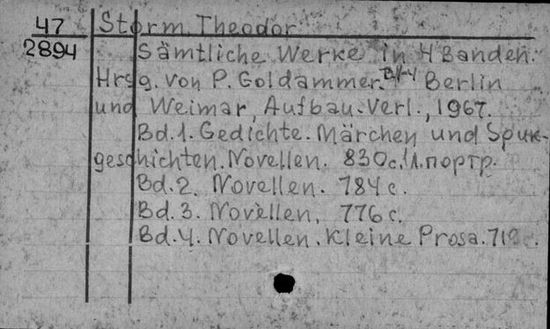 47 Storm, Theodor
2894 Sämtliche Werke in 4 Banden.
Hrsg. von P. Goldammer. B/1-4 Berlin
und Weimar, Aufbau-Verl., 1967.
Bd. 1. Gedichte. Märchen und Spuk-
geschichten. Novellen. 830 с. 1 л. портр.
Bd. 2. Novellen. 784 с.
Bd. 3. Novellen. 776 с.
Bd. 4. Novellen. Kleine Prosa.